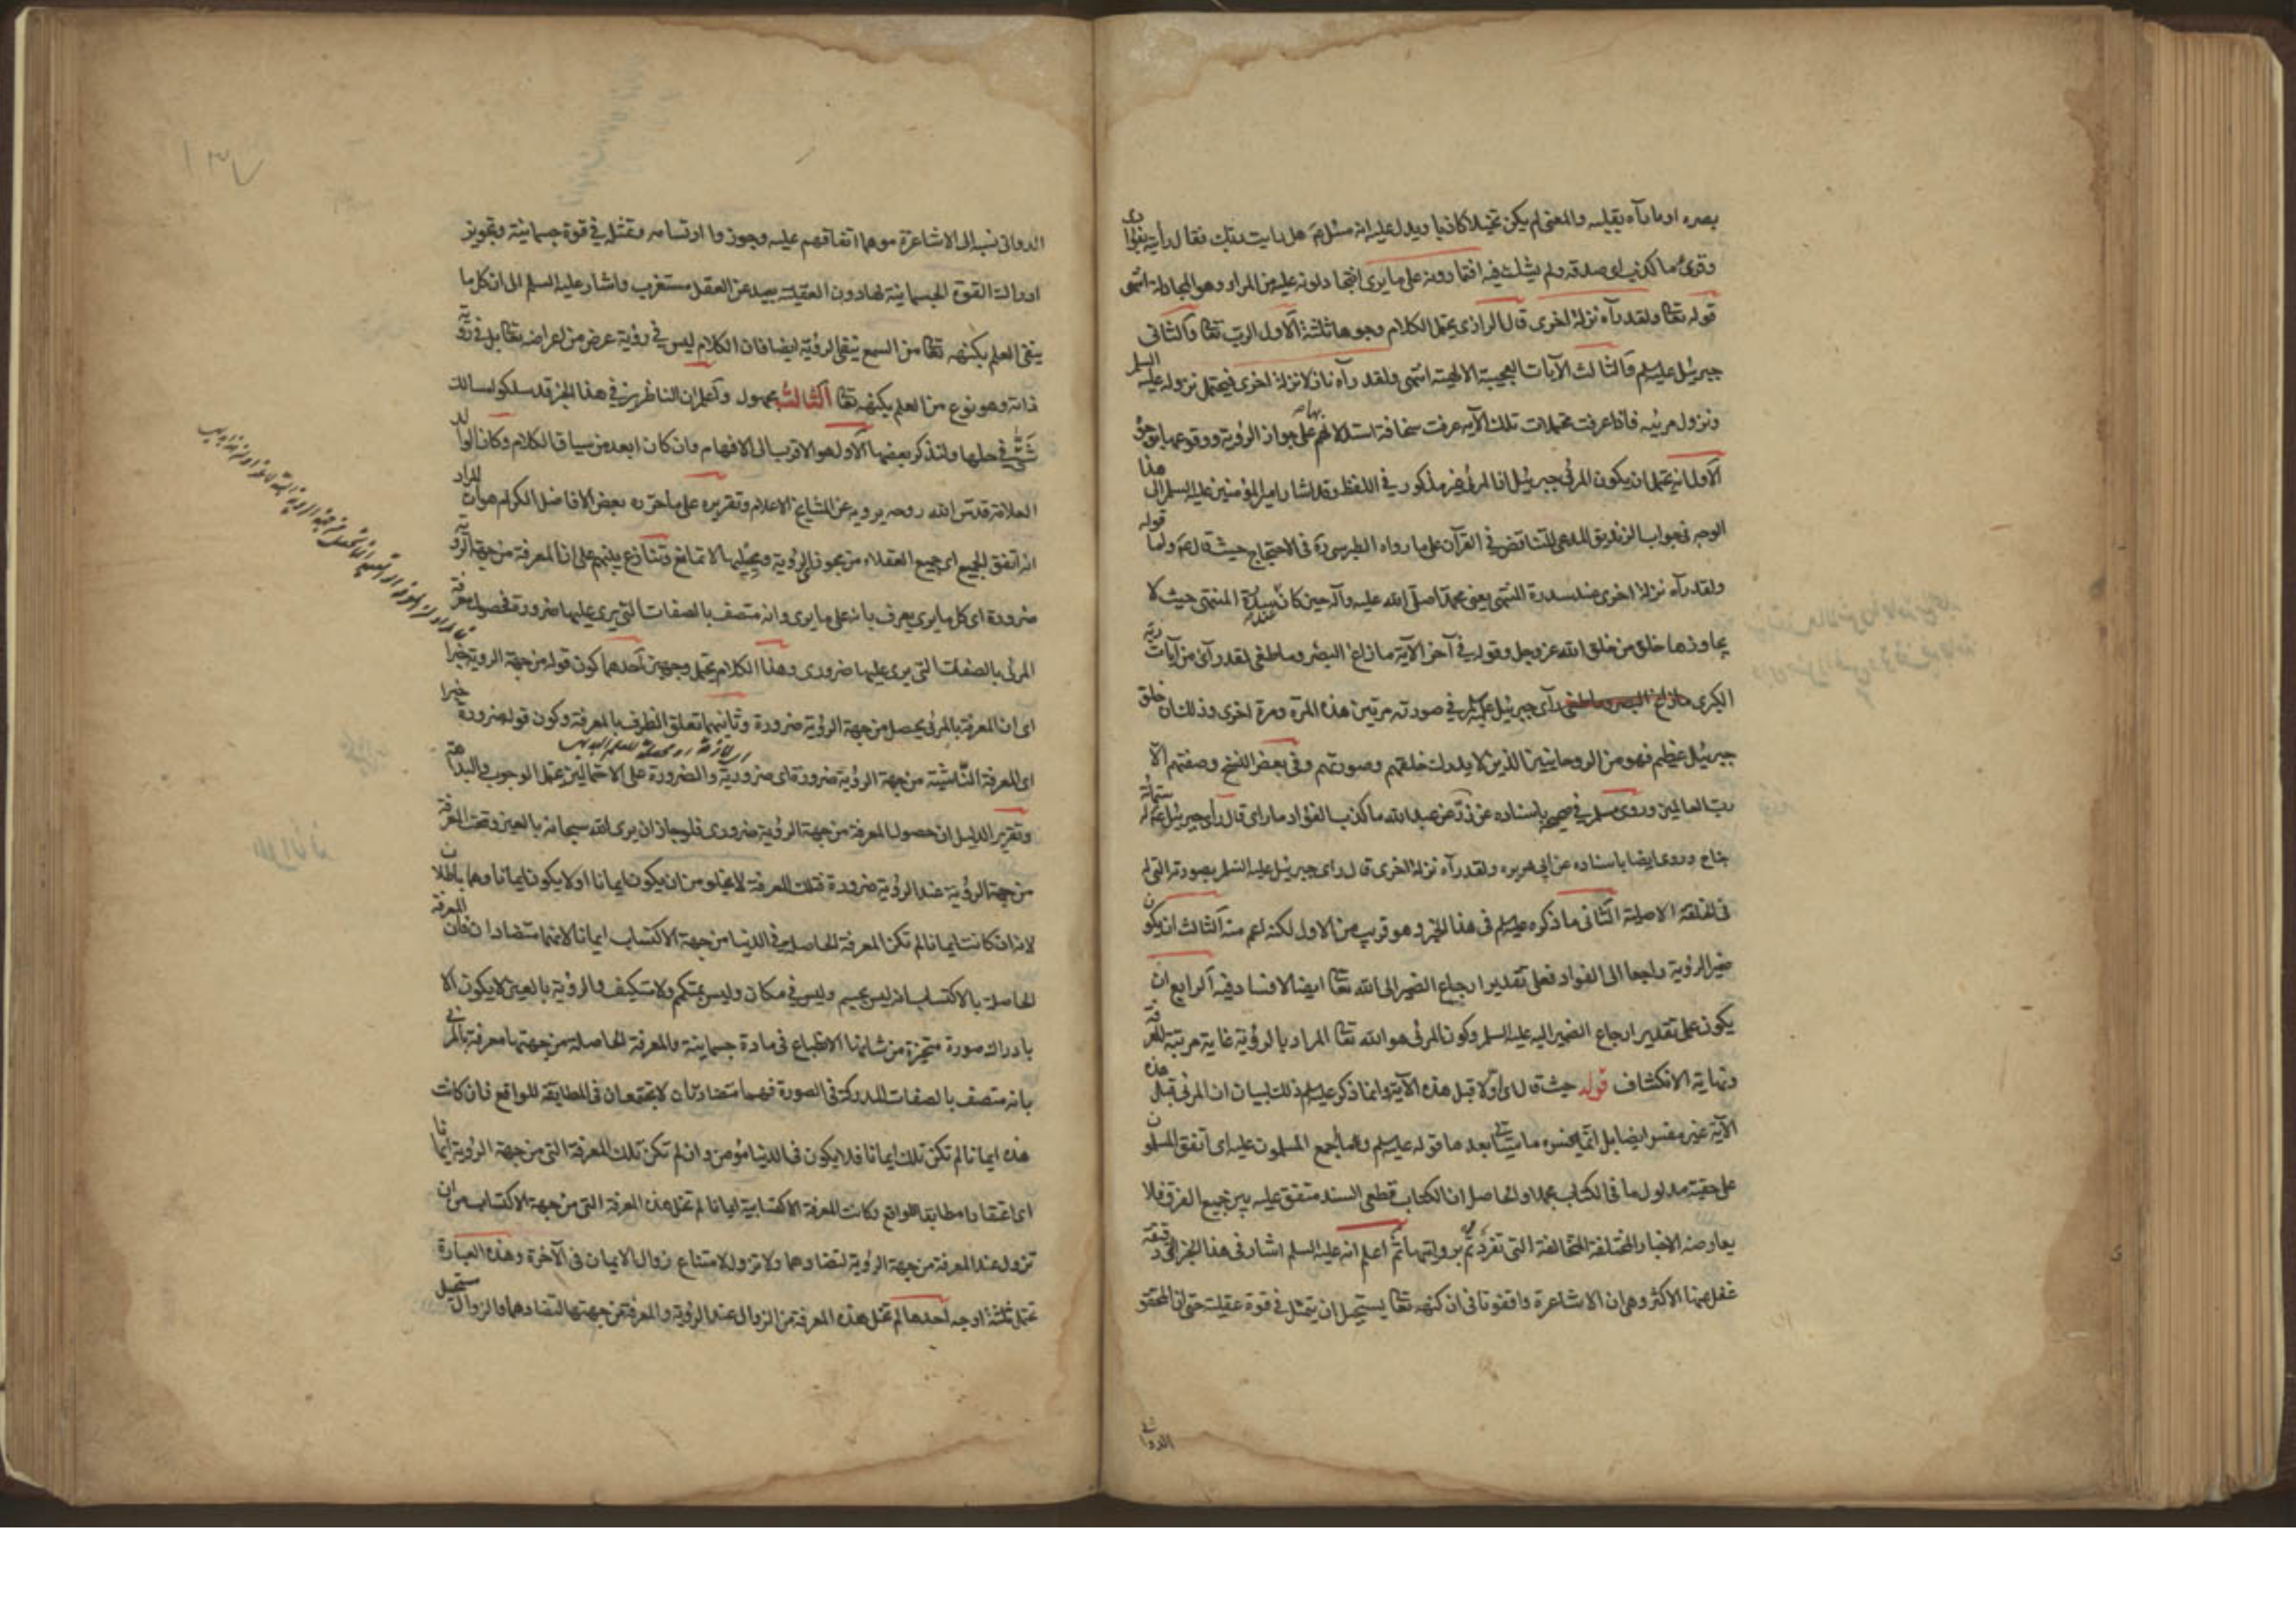 بصره او ما رآه بقلبه والمعنى لم يكن تخيلا كاذبا ويدل عليه انه سئل هل رايت ربك فقال رأيته بفؤادى
وقرئ ما كذب اى صدقه ولم يشك فيه افتمارونه على ما يرى افتجادلونه عليه من المراء وهو المجادلة انتهى
قوله تعا ولقد رآه نزلة اخرى قال الرازى يحتمل الكلام وجوها ثلثة الاول الرب تعا والثانى
جبرئيل عليه السلم والثالث الآيات العجيبة الالهية انتهى ولقد رآه نازلا نزلة اخرى فيحتمل نزوله عليه السلم
ونزول مرئيه فاذا عرفت محتملات تلك الآيه عرفت سخافة استدلالهم بها على جواز الرؤية ووقوعها بوجوه
الاول انه يحتمل ان يكون المرئى جبرئيل اذ المرئى غير مذكور فى اللفظ وقد اشار امير المؤمنين عليه السلم الى هذا
الوجه فى جواب الزنديق المدعى للتناقض فى القرآن على ما رواه الطبرسى ره فى الاحتجاج حيث قال ع واما قوله
ولقد رآه نزلة اخرى عند سدرة المنتهى يعنى محمدا صلى الله عليه وآله حين كان عند سدرة المنتهى حيث لا
يجاوزها خلق من خلق الله عز وجل وقوله فى آخر الآية ما زاغ البصر وما طغى لقد رآى من آيات ربه
الكبرى ما زاغ البصر وما طغى رآى جبرئيل عليه السلم فى صورته مرتين هذه المرة ومرة اخرى وذلك ان خلق
جبرئيل عظيم فهو من الروحانيين الذين لا يدرك خلقهم وصورتهم وفى بعض النسخ وصفتهم الا
رب العالمين وروى مسلم فى صحيحه باسناده عن زر عن عبد الله ما كذب الفؤاد ما راى قال رأى جبرئيل ع له ستمائة
جناح وروى ايضا باسناده عن ابى هريره ولقد رآه نزلة اخرى قال راى جبرئيل عليه السلم بصورته التى له
فى الخلقة الاصلية الثانى ما ذكره عليه السلم فى هذا الخبر وهو قريب من الاول لكنه اعم منه الثالث ان يكون
ضمير الرؤية راجعا الى الفؤاد فعلى تقدير ارجاع الضمير الى الله تعا ايضا لا فساد فيه الرابع ان
يكون على تقدير ارجاع الضمير اليه عليه السلم وكون المرئى هو الله تعا المراد بالرؤية غاية مرتبة المعرفة
ونهاية الانكشاف قوله حيث قال اى اولا قبل هذه الآية وانما ذكر عليه السلم ذلك لبيان ان المرئى قبل هذه
الآية غير مفسر ايضا بل انما يفسره ما ياتى بعدها قوله عليه السلم وما اجمع المسلمون عليه اى اتفق المسلمون
على حقية مدلول ما فى الكتاب مجملا والحاصل ان الكتاب قطعى السند متفق عليه بين جميع الفرق فلا
يعارضه الاخبار المختلفة المتخالفة التى تفردتم بروايتها ثم اعلم انه عليه السلم اشار فى هذا الخبر الى دقيقة
غفل عنها الاكثر وهى ان الاشاعرة وافقونا فى ان كنهه تعا يستحيل ان يتمثل فى قوة عقلية حتى ان المحقق
الدوانى
الدوانى نسبه الى الاشاعرة موهما اتفاقهم عليه وجوزوا ارتسامه وتمثله فى قوة جسمانية وتجويز
ادراك القوة الجسمانية لها دون العقلية بعيد عن العقل مستغرب واشار عليه السلم الى ان كل ما
ينفى العلم بكنهه تعا من السمع ينفى الرؤية ايضا فان الكلام ليس فى رؤية عرض من اعراضه تعا بل فى رؤية
ذاته وهو نوع من العلم بكنهه تعا الثالث مجهول واعلم ان الناظرين فى هذا الخبر قد سلكوا مسالك
شتى فى حلها ولنذكر بعضها الاول هو الاقرب الى الافهام وان كان ابعد من سياق الكلام وكان الوالد
العلامة قدس الله روحه يرويه عن المشايخ الاعلام وتقريره على ما حرره بعض الافاضل الكرام هو ان المراد
انه اتفق الجميع اى جميع العقلاء من مجوزى الرؤية ومحيليها لا تمانع وتنازع بينهم على ان المعرفة من جهة الرؤية
ضرورة اى كل ما يرى يعرف بانه على ما يرى وانه متصف بالصفات التى يرى عليها ضرورة فحصول معرفة
المرئى بالصفات التى يرى عليها ضرورى وهذا الكلام يحتمل وجهين احدهما كون قوله من جهة الرؤية خبرا
اى ان المعرفة بالمرئى يحصل من جهة الرؤية ضرورة وثانيهما تعلق الظرف بالمعرفة وكون قوله ضرورة خبرا
اى المعرفة الناشئة من جهة الرؤية ضرورة اى ضرورية والضرورة على الاحتمالين يحتمل الوجوب والبداهة
وتقرير الدليل ان حصول المعرفة من جهة الرؤية ضرورى فلو جاز ان يرى الله سبحانه بالعين وقعت المعرفة
من جهة الرؤية عند الرؤية ضرورة فتلك المعرفة لا يخلو من ان يكون ايمانا او لا يكون ايمانا وهما باطلان
لانه ان كانت ايمانا لم تكن المعرفة الحاصلة فى الدنيا من جهة الاكتساب ايمانا لانهما متضادان فان المعرفة
الحاصلة بالاكتساب انه ليس بجسم وليس فى مكان وليس بمتكمم ولا متكيف والرؤية بالعين لا يكون الا
بادراك صورة متحيزة من شانها الانطباع فى مادة جسمانية والمعرفة الحاصلة من جهتها معرفة بالمرئى
بانه متصف بالصفات المدركة فى الصورة فهما متضادتان لا يجتمعان فى المطابقة للواقع فان كانت
هذه ايمانا لم تكن تلك ايمانا فلا يكون فى الدنيا مؤمن وان لم تكن تلك المعرفة التى من جهة الرؤية ايمانا
اى اعتقادا مطابقا للواقع وكانت المعرفة الاكتسابية ايمانا لم تخل هذه المعرفة التى من جهة الاكتساب من ان
تزول عند المعرفة من جهة الرؤية لتضادهما ولا تزول لامتناع زوال الايمان فى الآخرة وهذه العبارة
تحتمل ثلثة اوجه احدها لم تخل هذه المعرفة من الزوال عند الرؤية والمعرفة من جهتها لتضادهما والزوال مستحيل